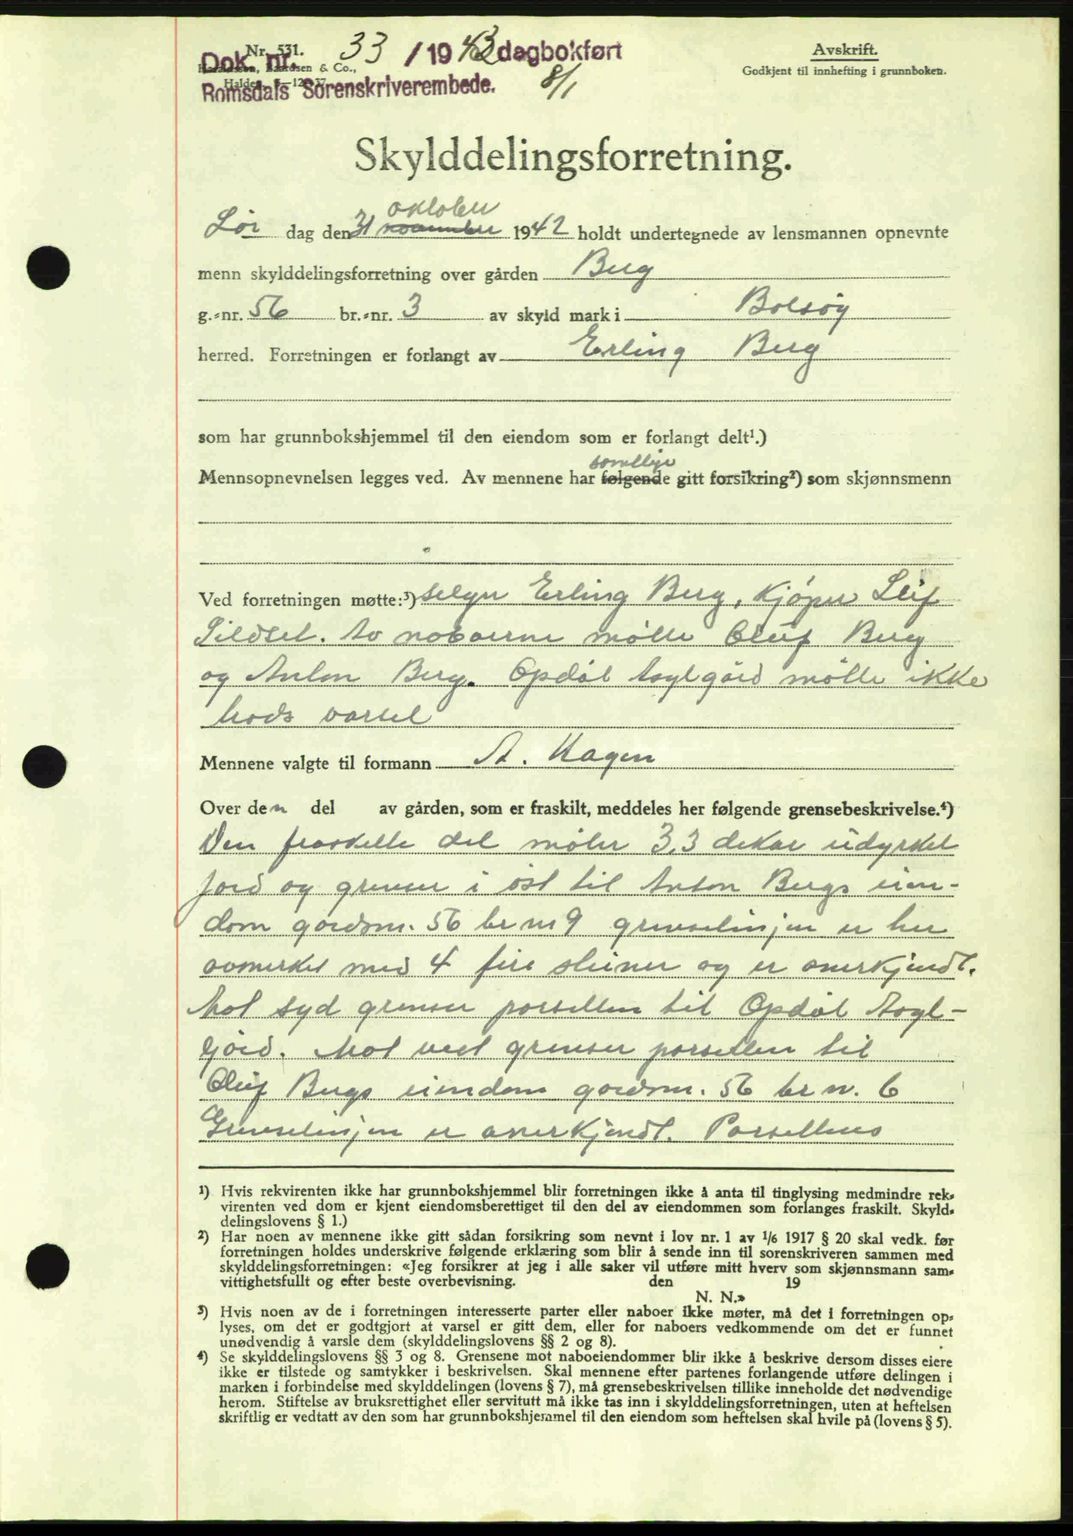 Nr. 531.
Dok. nr. 33 / 1943 dagbokført
8/1
Romsdals Sorenskriverembede.
Avskrift.
Godkjent til innhefting i grunnboken.
Skylddelingsforretning.
oktober
Lør dag den 31 november 1942 holdt undertegnede av lensmannen opnevnte
menn skylddelingsforretning over gården Berg
g.-nr. 56 br.-nr. 3 av skyld mark i Bolsøy
herred. Forretningen er forlangt av Erling Berg
som har grunnbokshjemmel til den eiendom som er forlangt delt¹.)
samtlige
Mennsopnevnelsen legges ved. Av mennene har følgende gitt forsikring²) som skjønnsmenn
Ved forretningen møtte:³) selger Erling Berg, Kjøper Leif
Sildset. Av naboerne møtte Oluf Berg
og Anton Berg. Opdøl Asylgård møtte ikke
trods varsel
Mennene valgte til formann A. Hagen
Over den del av gården, som er fraskilt, meddeles her følgende grensebeskrivelse.⁴)
Den fraskilte del måler 3,3 dekar udyrket
jord og grenser i øst til Anton Bergs eien-
dom gårdsnr. 56 br nr 9 grenselinjen er her
avmerket med 4 fire steiner og er anerkjendt.
Mot syd grenser parsellen til Opdøl Asyl-
gård. Mot vest grenser parsellen til
Oluf Bergs eiendom gårdsnr. 56 br n. 6
Grenselinjen er anerkjendt. Parsellens
¹) Hvis rekvirenten ikke har grunnbokshjemmel blir forretningen ikke å anta til tinglysing medmindre rek-
virenten ved dom er kjent eiendomsberettiget til den del av eiendommen som forlanges fraskilt. Skyld-
delingslovens § 1.)
²) Har noen av mennene ikke gitt sådan forsikring som nevnt i lov nr. 1 av 1/6 1917 § 20 skal vedk. før
forretningen holdes underskrive følgende erklæring som blir å sende inn til sorenskriveren sammen med
skylddelingsforretningen: «Jeg forsikrer at jeg i alle saker vil utføre mitt hverv som skjønnsmann sam-
vittighetsfullt og efter beste overbevisning. den 19
N. N.»
³) Hvis noen av de i forretningen interesserte parter eller naboer ikke møter, må det i forretningen op-
lyses, om det er godtgjort at varsel er gitt dem, eller for naboers vedkommende om det er funnet
unødvendig å varsle dem (skylddelingslovens §§ 2 og 8).
⁴) Se skylddelingslovens §§ 3 og 8. Grensene mot naboeiendommer blir ikke å beskrive dersom disses eiere
ikke er tilstede og samtykker i beskrivelsen. Skal mennene efter partenes forlangende utføre delingen i
marken i forbindelse med skylddelingen (lovens § 7), må grensebeskrivelsen tillike inneholde det nødvendige
herom. Stiftelse av bruksrettighet eller servitutt må ikke tas inn i skylddelingsforretningen, uten at heftelsen
skriftlig er vedtatt av den som har grunnbokshjemmel til den eiendom som heftelsen skal hvile på (lovens § 5).